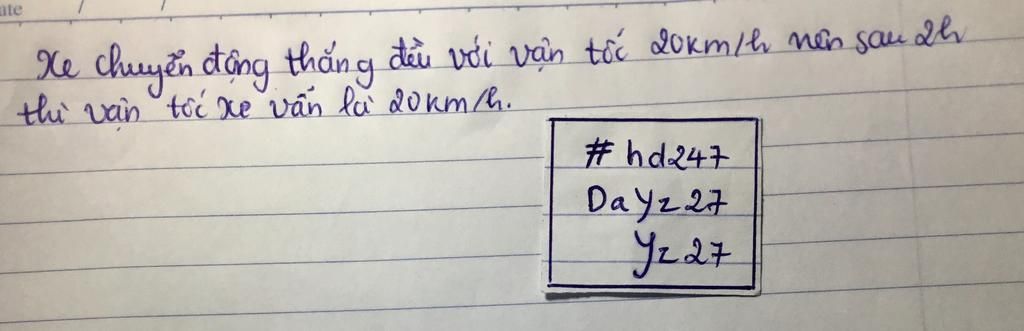 ate / /
Xe chuyển động thẳng đều với vận tốc 20km/h nên sau 2h
thì vận tốc xe vẫn là 20km/h.
# hd247
DaYz27
Yz27